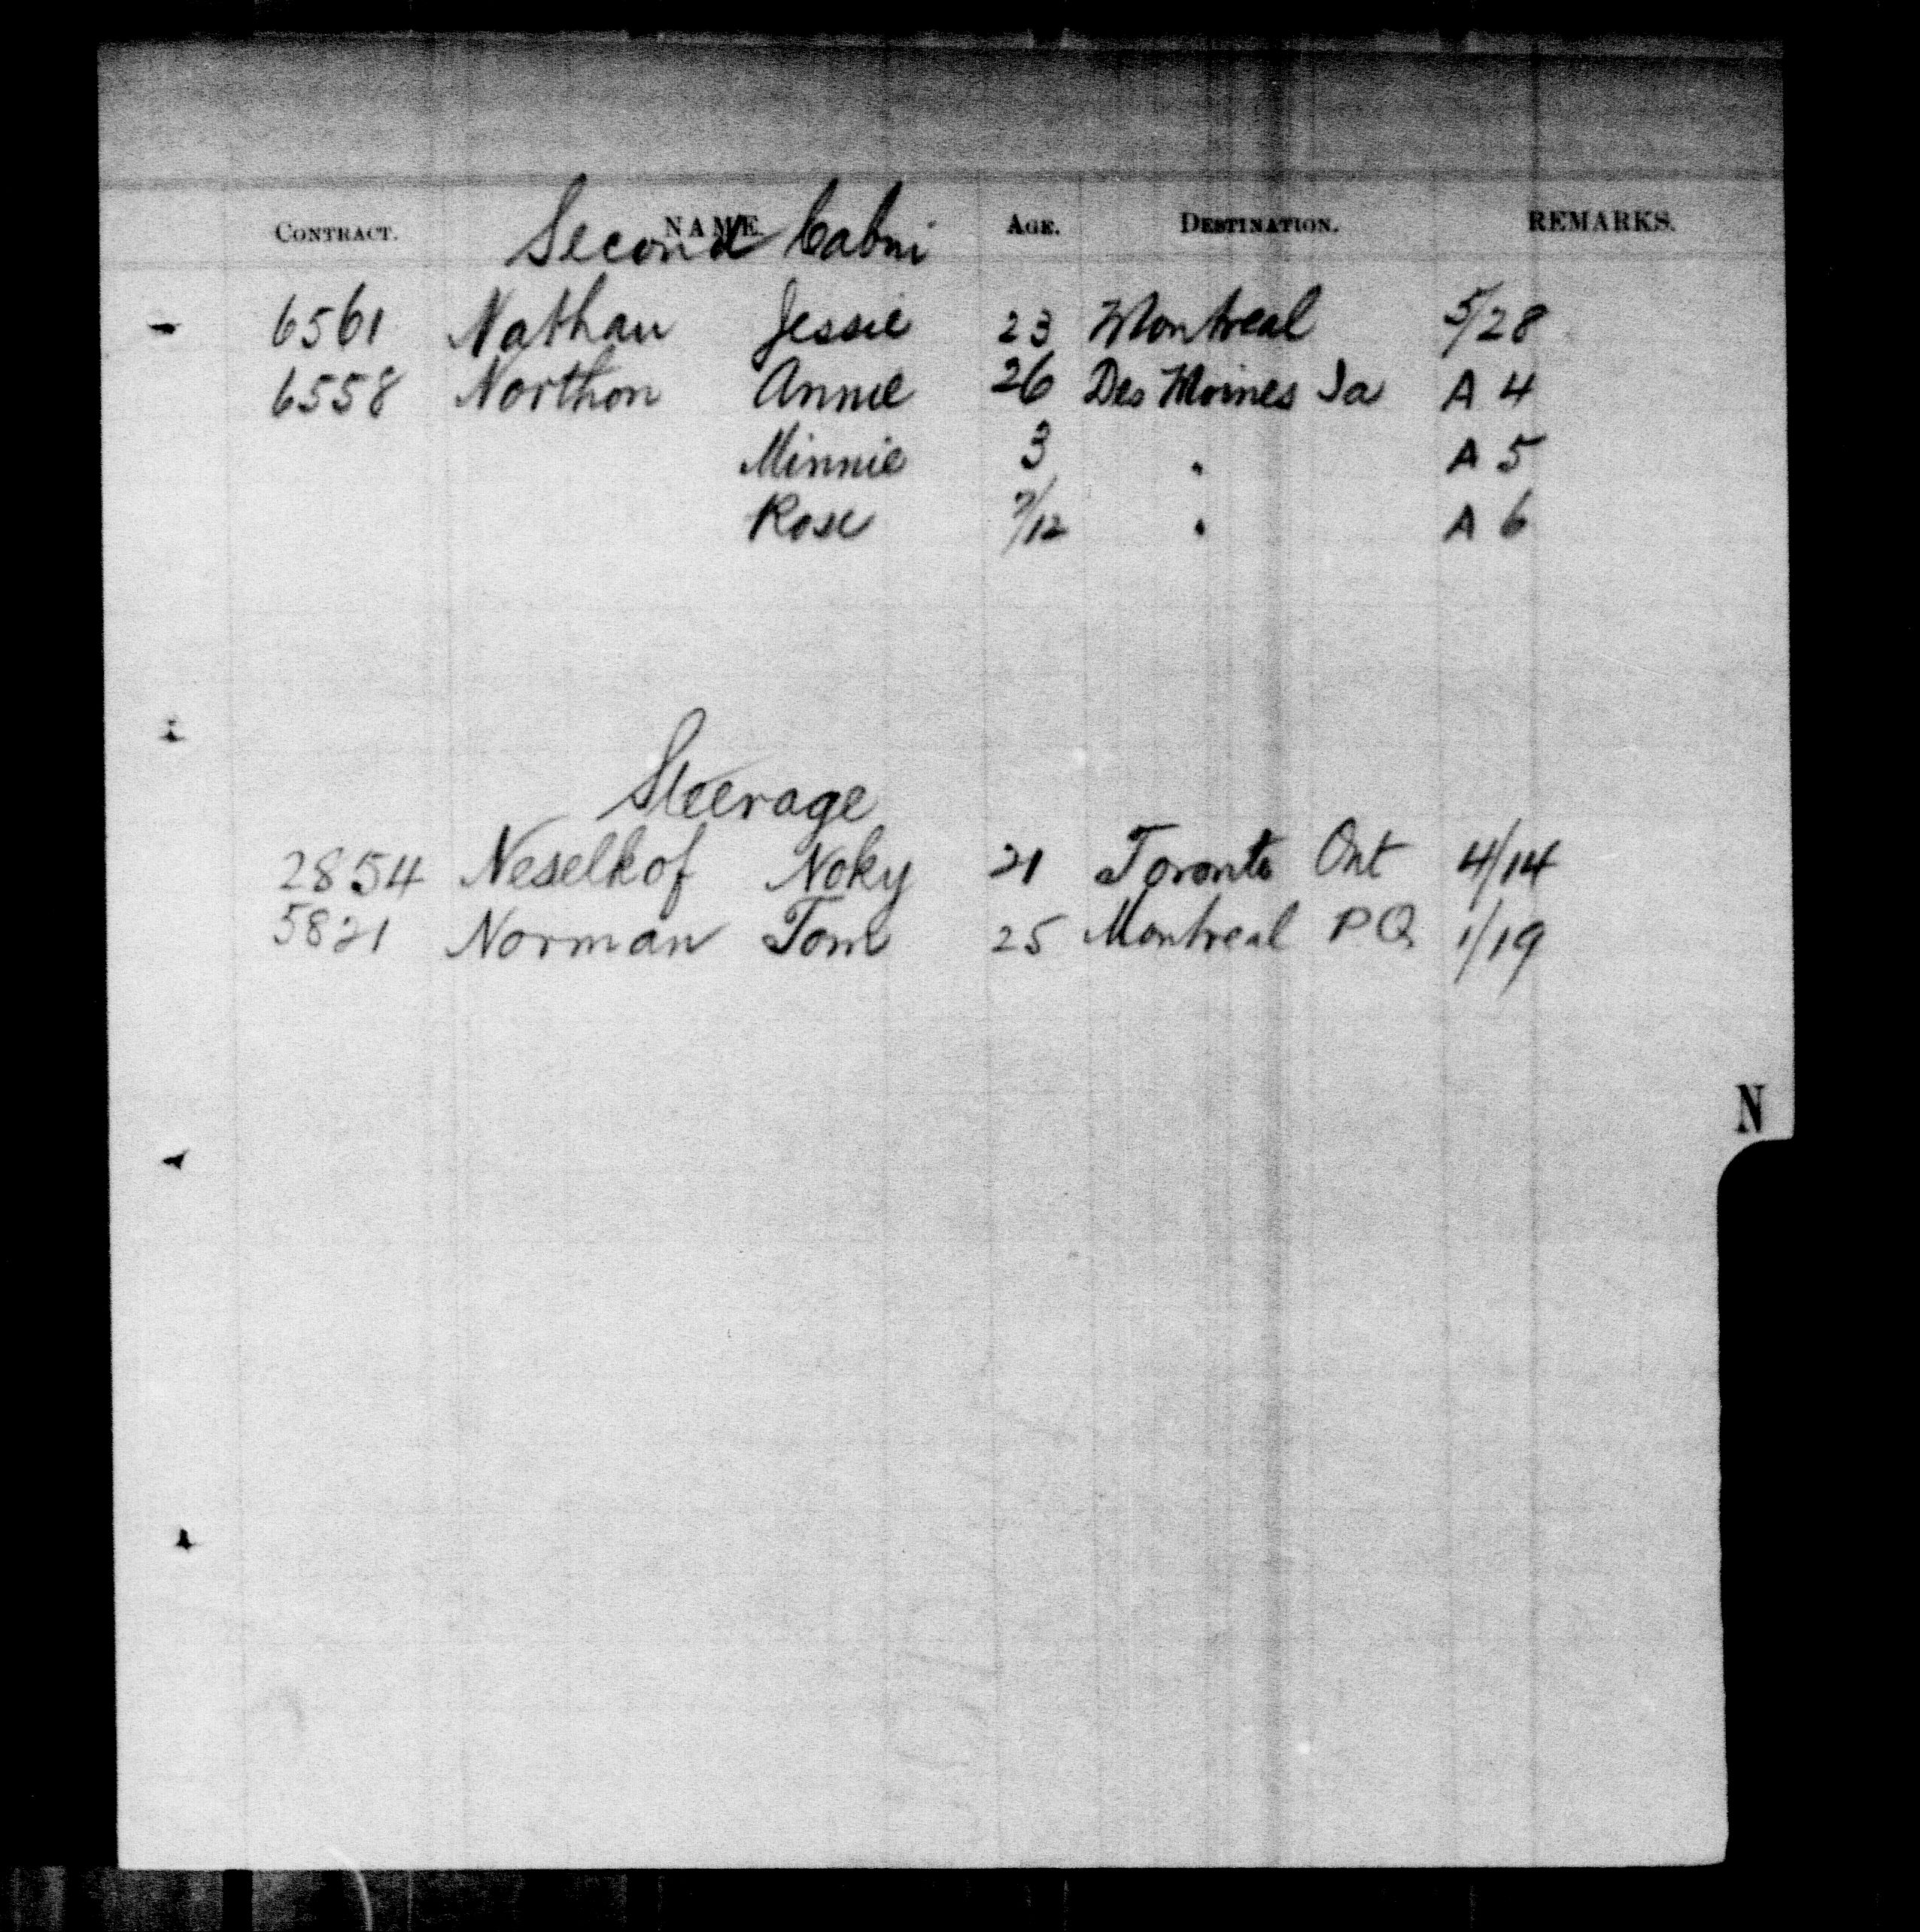 CONTRACT. NAME. AGE. DESTINATION. REMARKS.
Second Cabin
6561 Nathan Jessie 23 Montreal 5/28
6558 Northon Annie 26 Des Moines Ia A 4
Minnie 3 " A 5
Rose 7/12 " A 6
Steerage
2854 Neselkof Noky 21 Toronto Ont 4/14
5821 Norman Tom 25 Montreal PQ 1/19
N